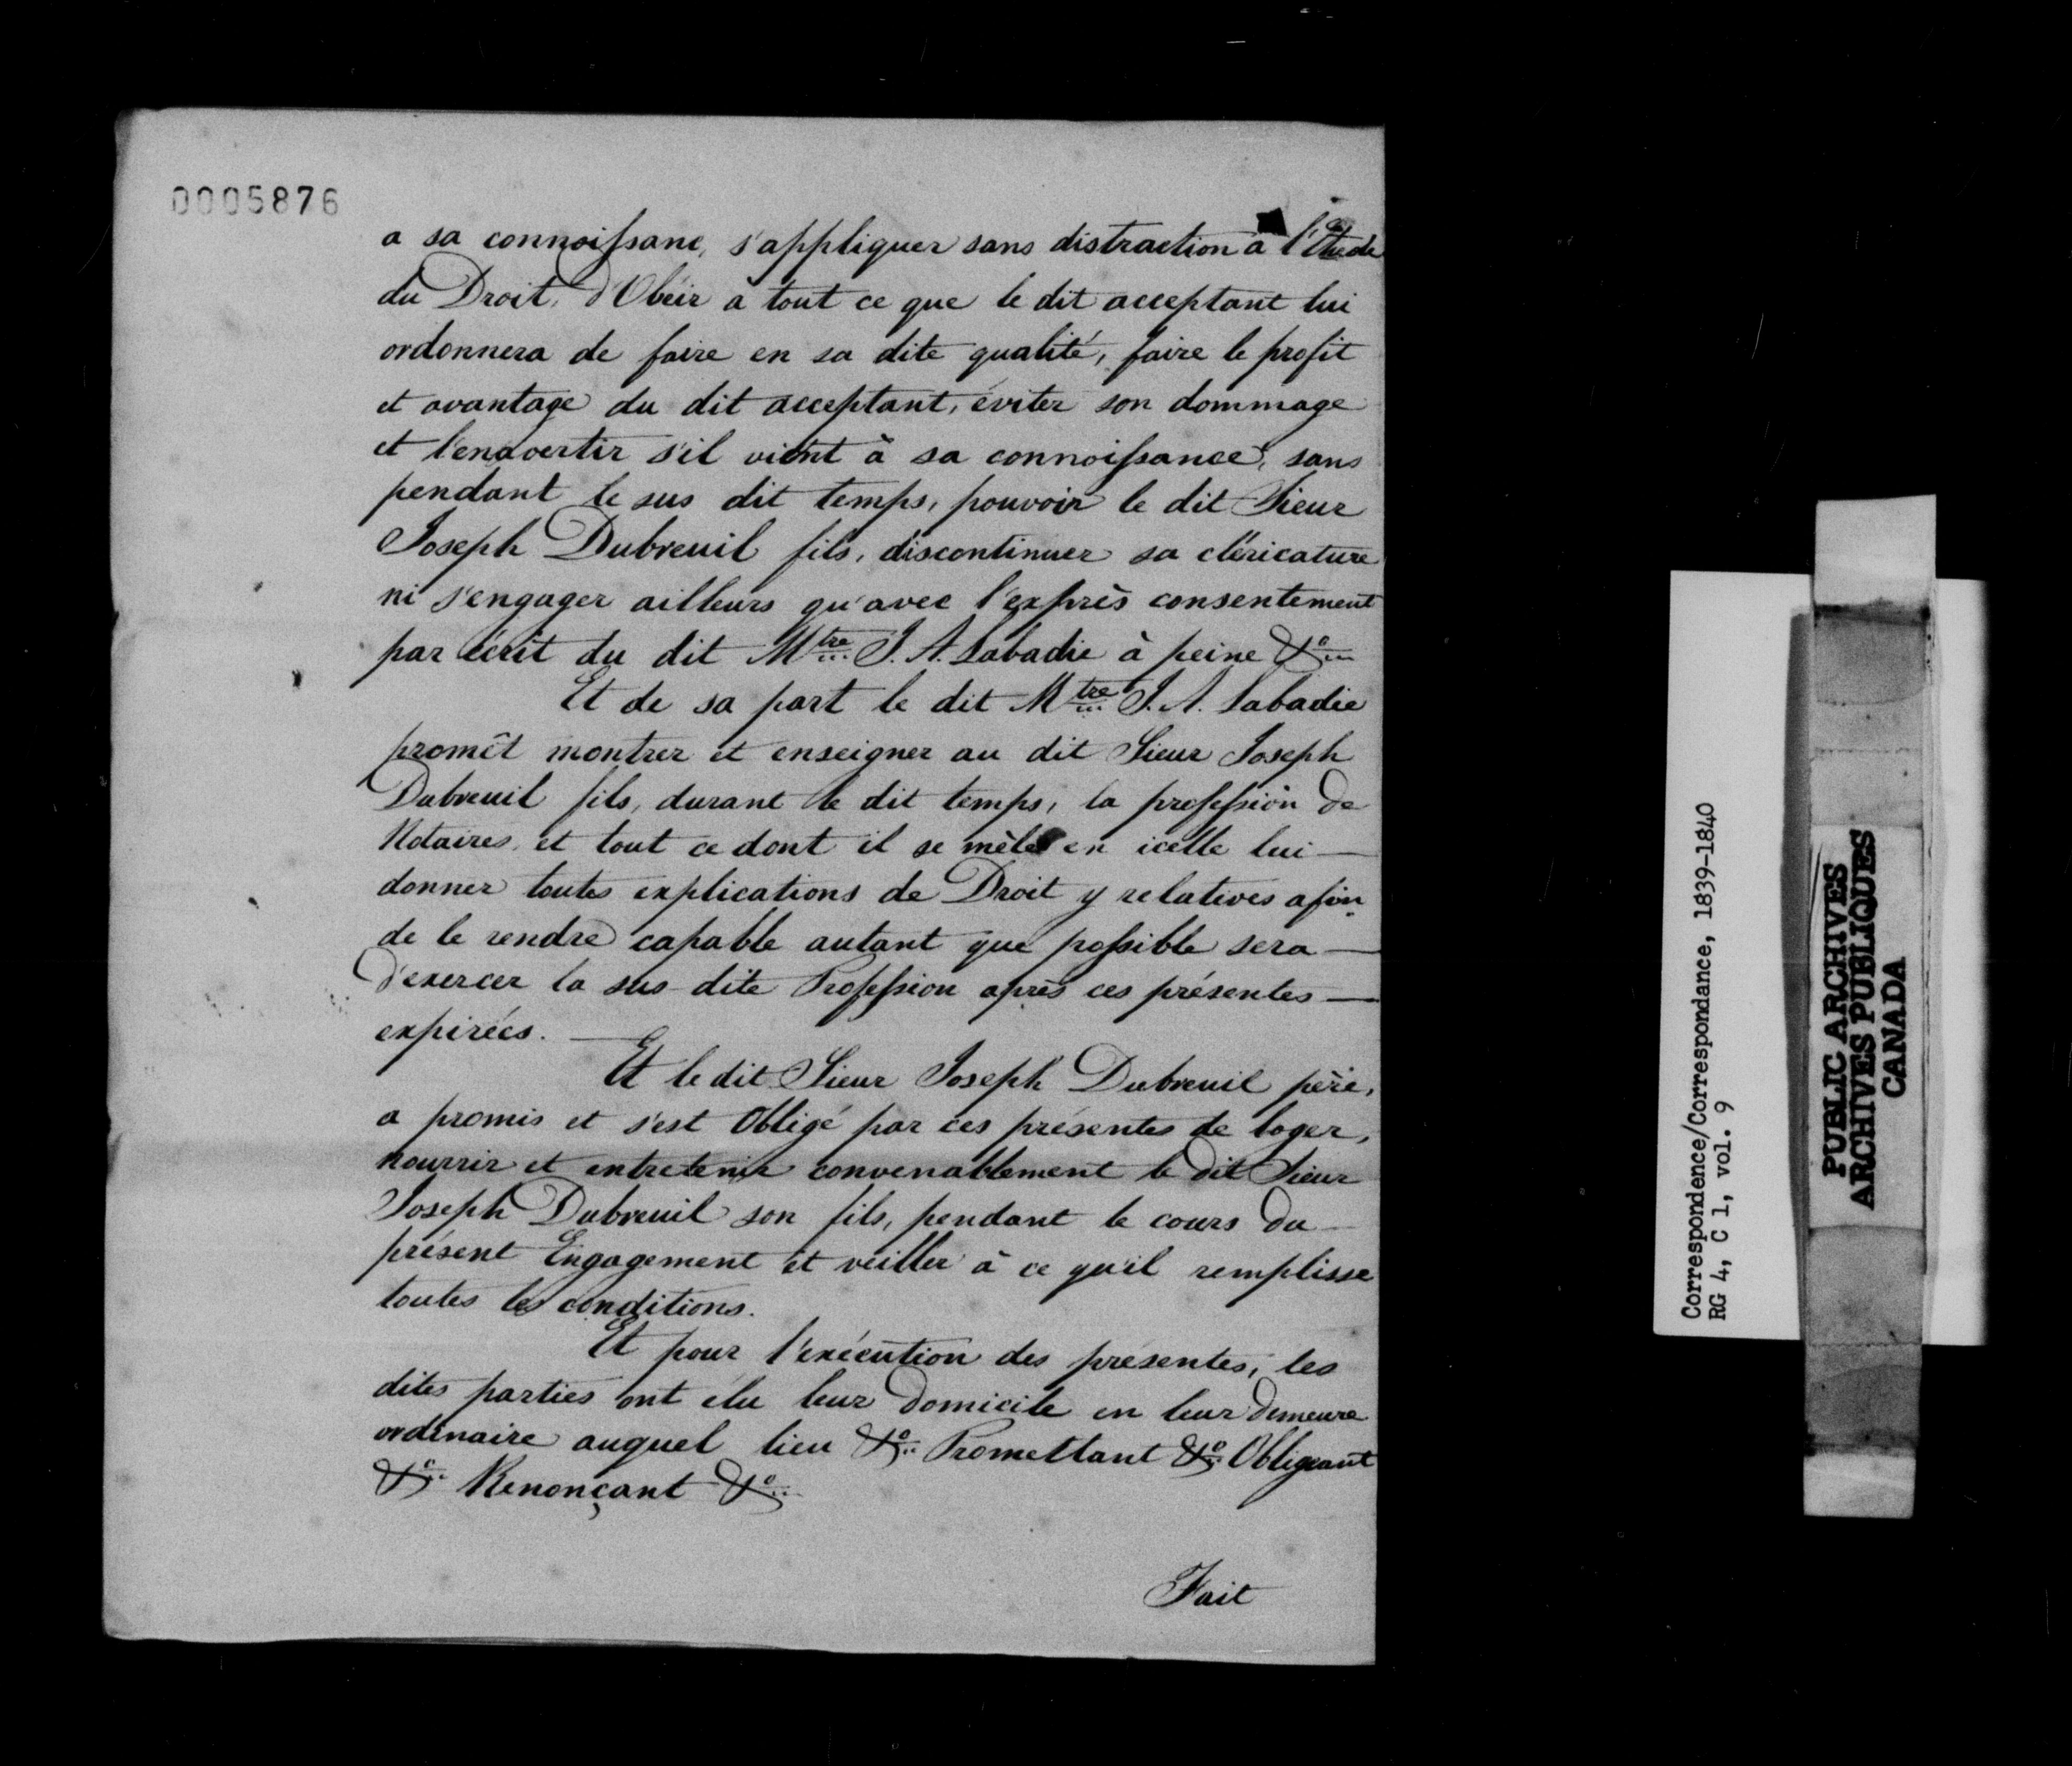 0005876
a sa connoissanc, s'appliquer sans distraction à l'Etude
du Droit, d'Obéir à tout ce que le dit acceptant lui
ordonnera de faire en sa dite qualité, faire le profit
et avantage du dit acceptant, éviter son dommage
et l'enavertir s'il vient à sa connoissance, sans
pendant le sus dit temps, pouvoir le dit Sieur
Joseph Dubreuil fils, discontinuer sa cléricature
ni s'engager ailleurs qu'avec l'exprès consentement
par écrit du dit Mtre J. A. Labadie à peine &c
Et de sa part le dit Mtre J. A. Labadie
promêt montrer et enseigner au dit Sieur Joseph
Dubreuil fils, durant le dit temps, la profession de
Notaires, et tout ce dont il se mêle en icelle lui —
donner toutes explications de Droit y relatives afin
de le rendre capable autant que possible sera —
d'exercer la sus-dite Profession après ces présentes —
expirées. —
Et le dit Sieur Joseph Dubreuil père,
a promis et s'est Obligé par ces présentes de loger,
nourrir et entretenir convenablement le dit Sieur
Joseph Dubreuil son fils, pendant le cours du —
présent Engagement et veiller à ce qu'il remplisse
toutes les conditions.
Et pour l'exécution des présentes, les
dites parties ont élu leur Domicile en leur demeure
ordinaire auquel lieu &c Promettant &c Obligeant
&c Renonçant &c
Fait
Correspondence/Correspondance, 1839-1840
RG 4, C 1, vol. 9
PUBLIC ARCHIVES
ARCHIVES PUBLIQUES
CANADA